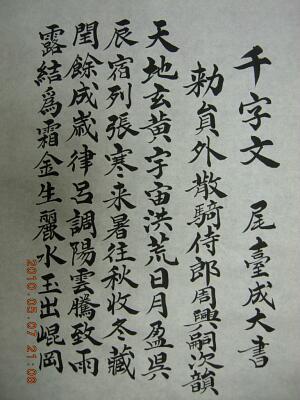 千字文 尾臺成大書
勅員外散騎侍郎周興嗣次韻
天地玄黃宇宙洪荒日月盈昃
辰宿列張寒来暑往秋收冬藏
閏餘成歳律呂調陽雲騰致雨
露結爲霜金生麗水玉出崐岡
2010.05.07 21:06